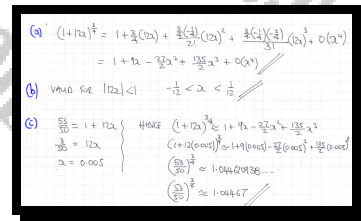 (a) (1+12x)^{3/4} = 1 + 3/4(12x) + 3/4(-1/4)/2! (12x)² + 3/4(-1/4)(-5/4)/3! (12x)³ + O(x⁴)
= 1 + 9x - 27/2 x² + 135/2 x³ + O(x⁴)
(b) VALID FOR |12x| < 1   -1/12 < x < 1/12
(c) 53/50 = 1 + 12x   HENCE (1+12x)^{3/4} ≈ 1 + 9x - 27/2 x² + 135/2 x³
3/50 = 12x   (1+12(0.005))^{3/4} ≈ 1 + 9(0.005) - 27/2 (0.005)² + 135/2 (0.005)³
x = 0.005   (53/50)^{3/4} ≈ 1.04467093...
(53/50)^{3/4} ≈ 1.04467